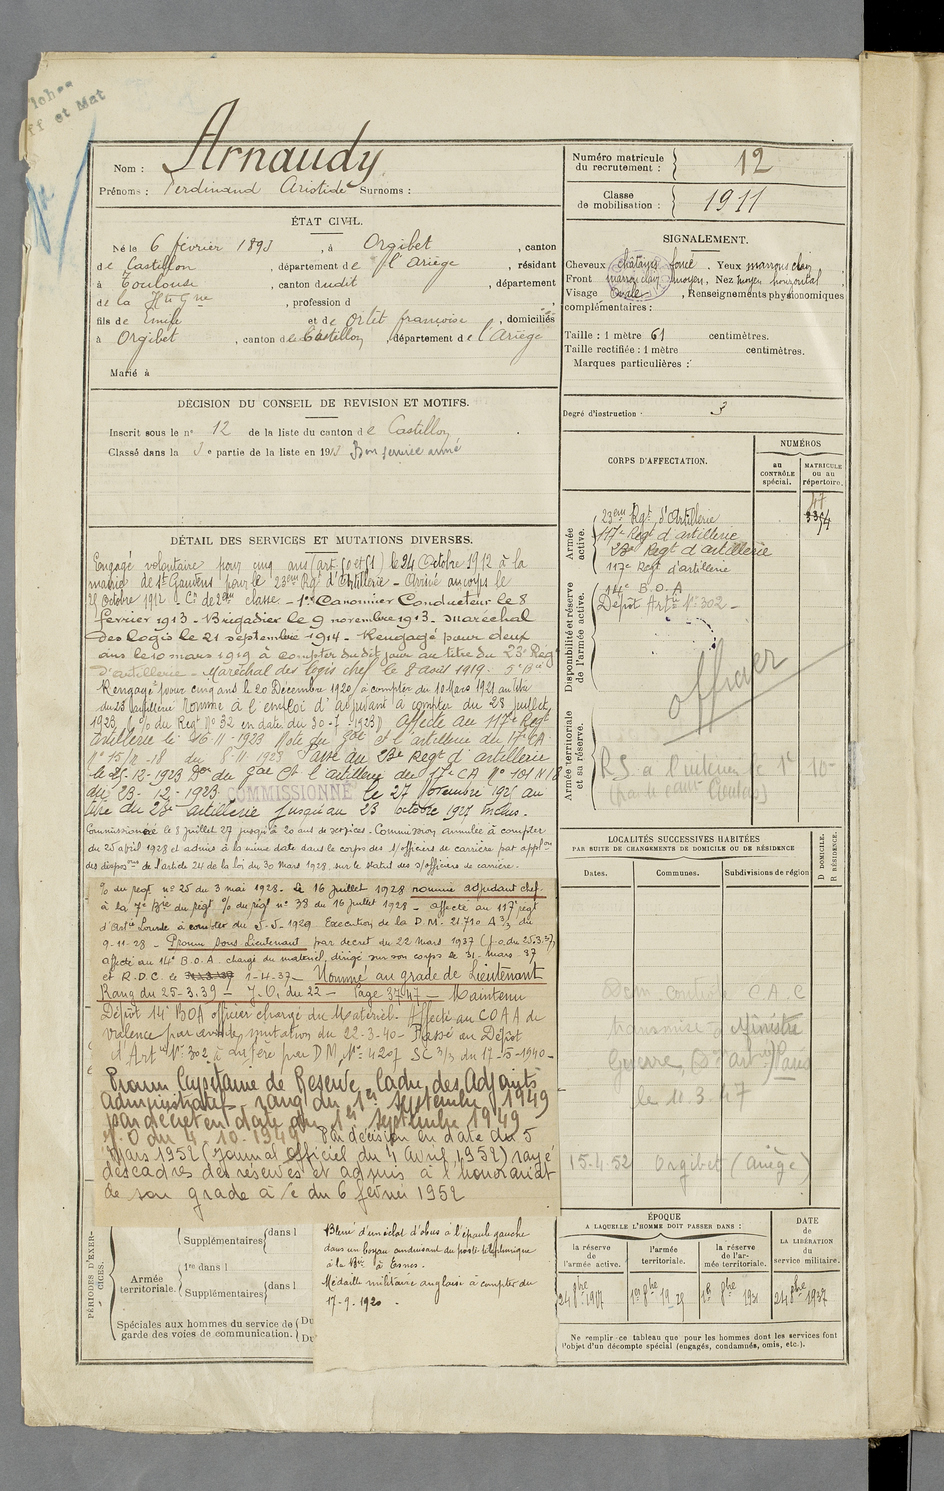 et Mat
Arnaudy
Nom :
Prénoms : Ferdinand Aristide Surnoms :
ÉTAT CIVIL.
Né le 6 février 1893, à Orgibet, canton
de Castillon, département de l'Ariège, résidant
à Toulouse, canton dudit, département
de la Hte Gne, profession d
fils de Emile et de Ortet françoise, domiciliés
à Orgibet, canton de Castillon, département de l'Ariège
Marié à
DÉCISION DU CONSEIL DE REVISION ET MOTIFS.
Inscrit sous le n° 12 de la liste du canton de Castillon
Classé dans la 3e partie de la liste en 1913 Bon service armé
DÉTAIL DES SERVICES ET MUTATIONS DIVERSES.
Engagé volontaire pour cinq ans (art. 50 et 51) le 24 Octobre 1912 à la
mairie de St Gaudens pour le 23ème Rgt d'Artillerie - Arrivé au corps le
25 Octobre 1912 - Ct de 2ème classe - 1er Canonnier Conducteur le 8
février 1913 - Brigadier le 9 novembre 1913 - Maréchal
des logis le 21 septembre 1914 - Rengagé pour deux
ans le 10 mars 1919 à compter dudit jour au titre du 23e Reg
d'artillerie - Maréchal des logis chef le 8 août 1919. 5e Bie
Rengagé pour cinq ans le 20 Décembre 1920, à compter du 10 Mars 1921 au titre
du 23 artillerie Nommé à l'emploi d'adjudant à compter du 28 juillet
1923, (o/o du Regt N° 32 en date du 30-7-1923) affecté au 117e Regt
artillerie le 16-11-1923 Note du Gal Ct l'artillerie du 17e CA
N° 15/12-18 du 8-11 1923 Passé au 23e Regt d'artillerie
le 25-12-1923 Don du Gal Ct l'artillerie du 17e CA N° 101 N/18
du 23-12-1923 COMMISSIONNÉ le 27 Novembre 1925 au
titre du 23e artillerie jusqu'au 23 octobre 1927 inclus.
Commissionné le 8 juillet 27 jusqu'à 20 ans de services. Commission annulée à compter
du 25 avril 1928 et admis à la même date dans le corps des s/officiers de carrière par applon
des disposons de l'article 24 de la loi du 30 Mars 1928, sur le statut des s/officiers de carrière.
o/o du regt n° 25 du 3 mai 1928. Le 16 juillet 1928 nommé adjudant chef
à la 7e Bie du régt o/o du régt n° 38 du 16 juillet 1928 - affecté au 117e regt
d'Artie Lourde à compter du 5.5.1929. Execution de la D.M. 21710 A 3/3 du
9-11-28 - Promu sous Lieutenant par decret du 22 Mars 1937 (J.o. du 25.3.37)
affecté au 14e B.O.A. chargé du matériel, dirigé sur son corps le 31-Mars-37
et R.D.C. le 1-4-37 - Nommé au grade de Lieutenant
Rang du 25-3-39 - J.O. du 22 - Page 3747 - Maintenu
Dépôt 14e BOA officier chargé du Matériel. Affecté au COAA de
Valence par mutation du 22-3-40 - Passé au Dépôt
d'Artie N° 302 à par D.M. N° 4207 SC 3/3 du 17-5-1940 -
Promu Capitaine de Réserve Cadre des Adjoints
administratifs - rang du 1er septembre 1949
par décret en date du 1er septembre 1949
J.O du 4.10.1949 Par décision en date du 5
Mars 1952 (journal officiel du 4 Avril 1952) rayé
des cadres des réserves et admis à l'honorariat
de son grade à c/e du 6 février 1952
PÉRIODES D'EXERCICES.
Supplémentaires dans l
Armée territoriale.
1re dans l
Supplémentaires dans l
Spéciales aux hommes du service de garde des voies de communication.
Du
Du
Blessé d'un éclat d'obus à l'épaule gauche
dans un boyau conduisant du poste téléphonique
à la Bie à Esnes.
Médaille militaire anglaise à compter du
17-9-1920.
Numéro matricule du recrutement : 12
Classe de mobilisation : 1911
SIGNALEMENT.
Cheveux châtains foncé. Yeux marrons clair
Front moyen, Nez moyen horizontal
Visage Ovale, Renseignements physionomiques
complémentaires :
Taille : 1 mètre 61 centimètres.
Taille rectifiée : 1 mètre centimètres.
Marques particulières :
Degré d'instruction : 3
CORPS D'AFFECTATION.
NUMÉROS
au CONTRÔLE spécial.
MATRICULE ou au répertoire.
Armée active.
23ème Rgt d'Artillerie
117e Regt d'artillerie
23e Regt d'artillerie
117e Regt d'artillerie
47
Disponibilité et réserve de l'armée active.
14e B.O.A
Dépôt Artie N° 302 -
officier
Armée territoriale et sa réserve.
LOCALITÉS SUCCESSIVES HABITÉES
PAR SUITE DE CHANGEMENTS DE DOMICILE OU DE RÉSIDENCE
Dates.
Communes.
Subdivisions de région
D DOMICILE. R RÉSIDENCE.
C.A.C
transmise à Ministre
Guerre, (Don Artie) Paris
le 11.3.47
15-4-52 Orgibet (Ariège)
ÉPOQUE
A LAQUELLE L'HOMME DOIT PASSER DANS :
la réserve de l'armée active.
l'armée territoriale.
la réserve de l'armée territoriale.
DATE de LA LIBÉRATION du service militaire.
24 8bre 1937
Ne remplir ce tableau que pour les hommes dont les services font
l'objet d'un décompte spécial (engagés, condamnés, omis, etc.).